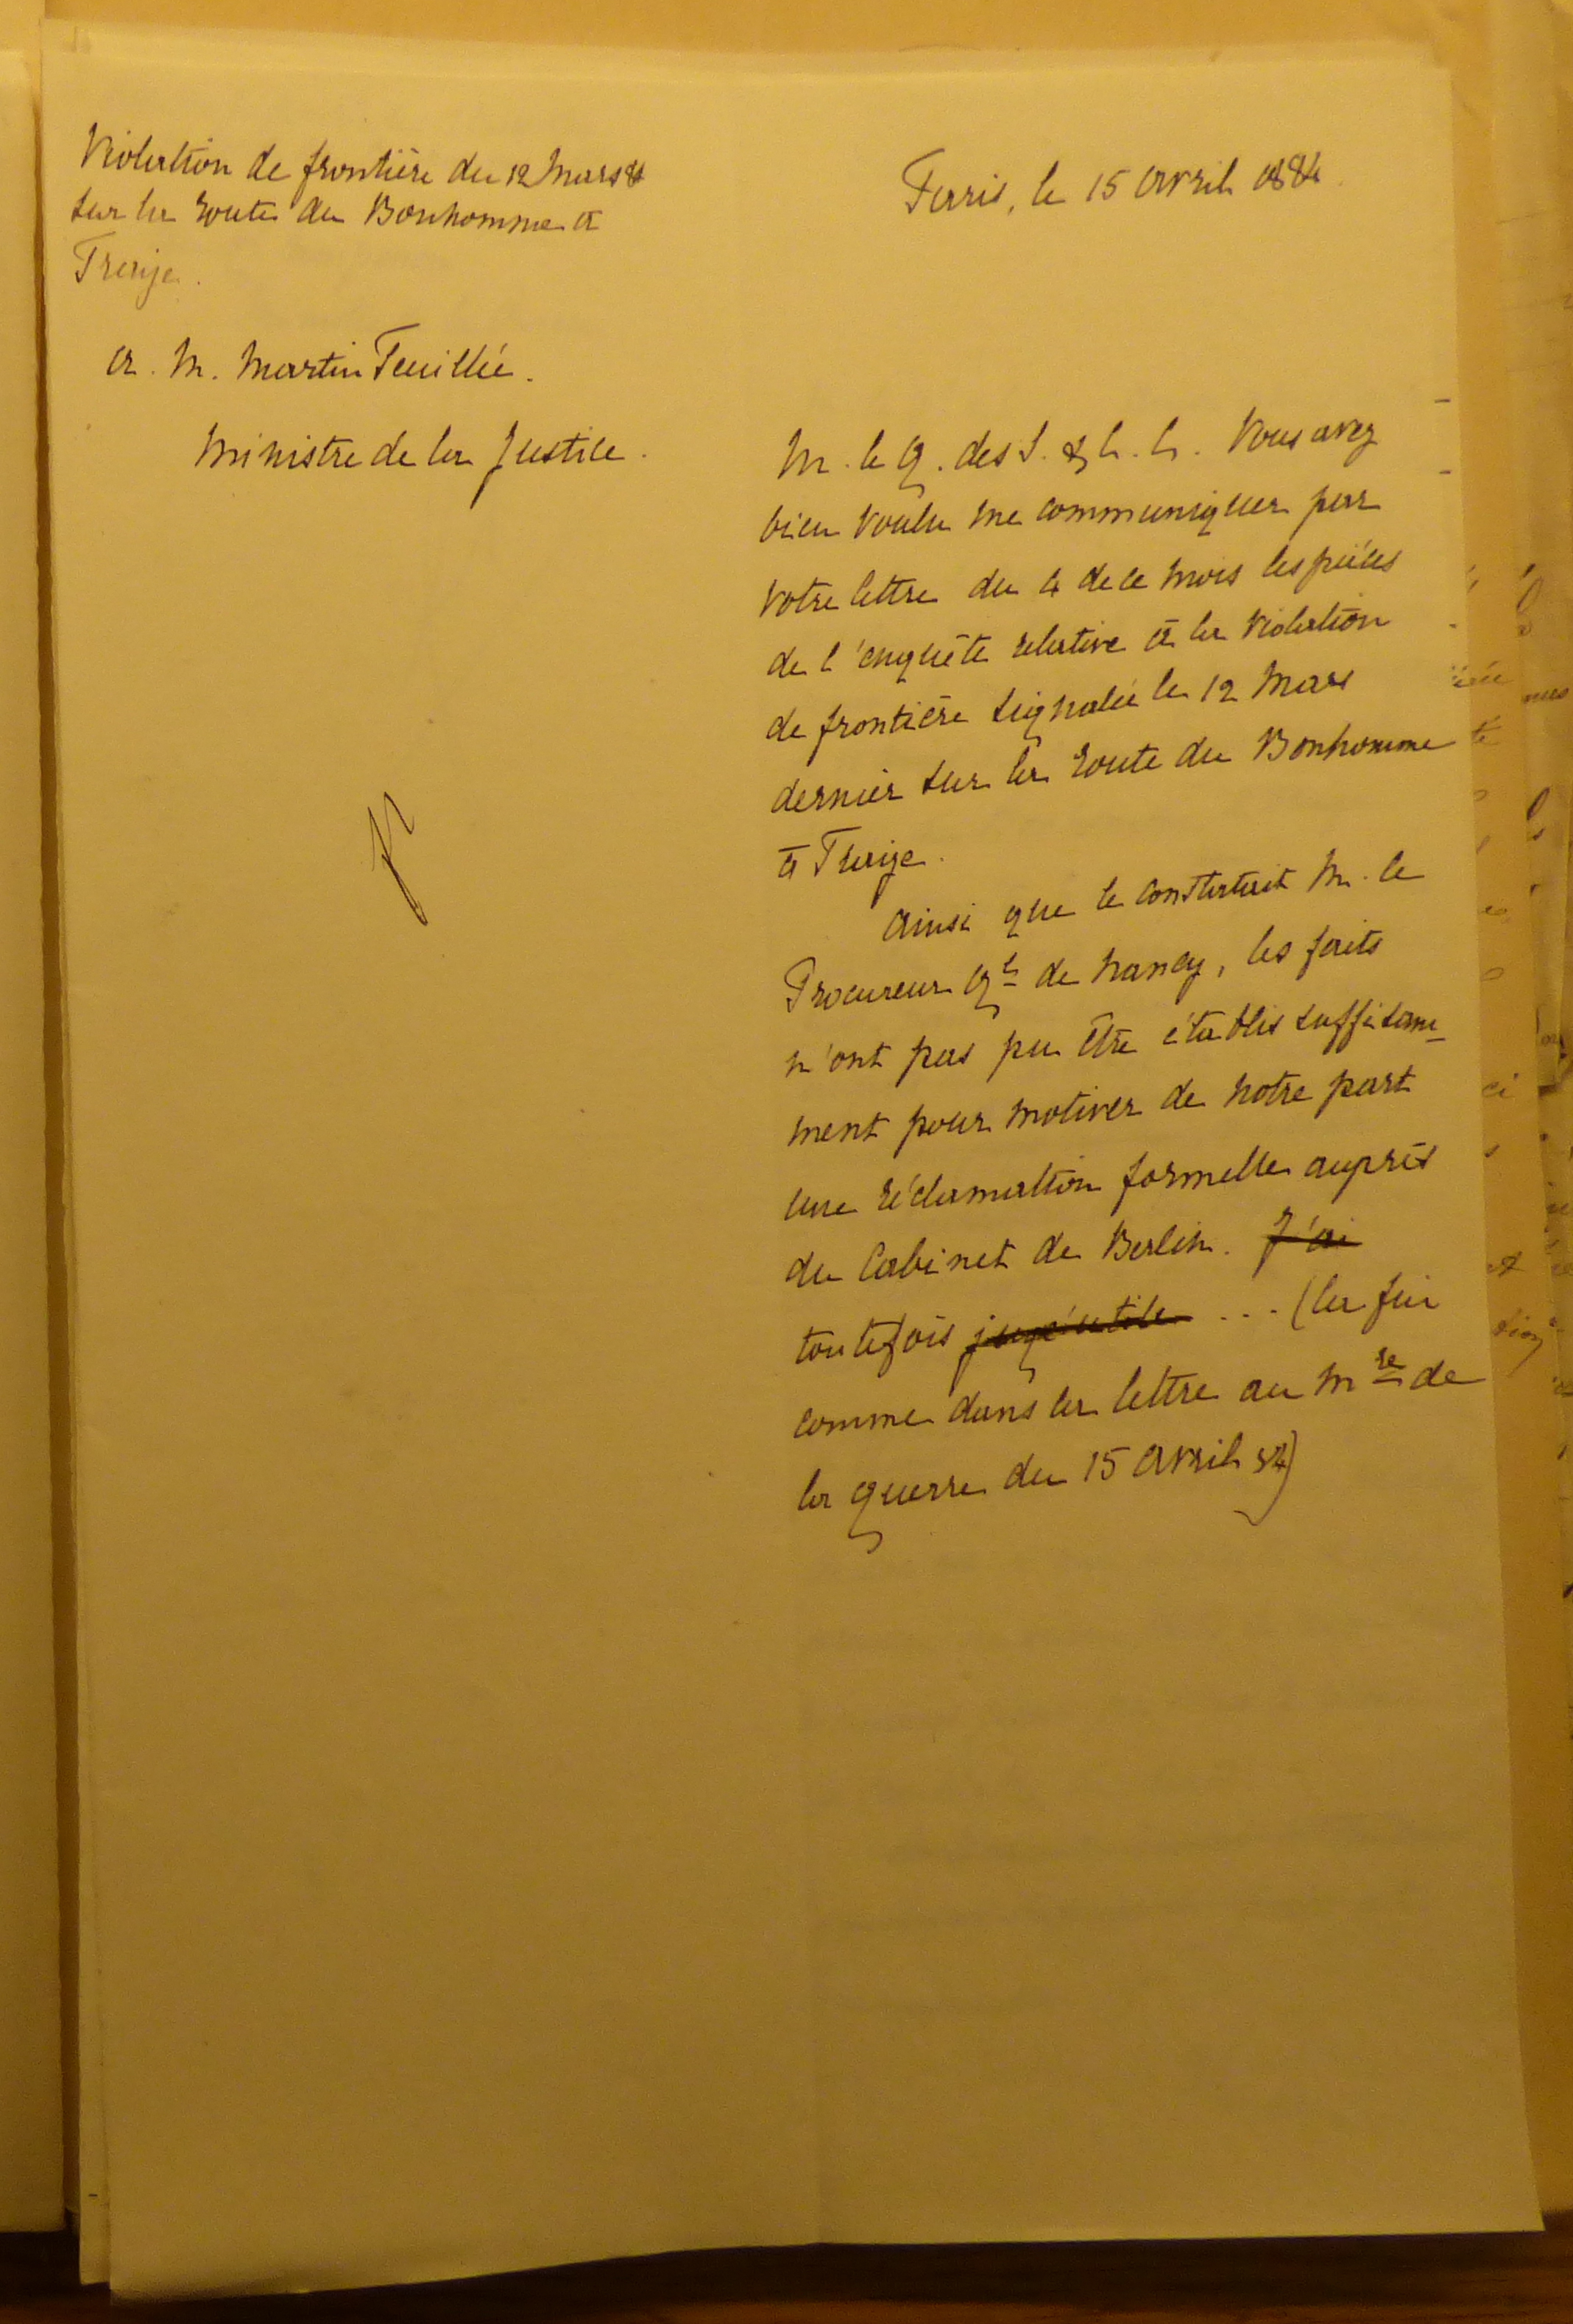 Violation de frontière du 12 Mars 84
sur la route du Bonhomme à
Fraize.
à M. Martin Feuillée.
Ministre de la Justice.
Paris, le 15 Avril 1884.
M. le G. des S. & ch. c. Vous avez
bien voulu me communiquer par
votre lettre du 4 de ce mois les pièces
de l'enquête relative à la violation
de frontière signalée le 12 Mars
dernier sur la route du Bonhomme
à Fraize.
Ainsi que le constatait M. le
Procureur Gl de Nancy, les faits
n'ont pas pu être établis suffisam-
ment pour motiver de notre part
une réclamation formelle auprès
du Cabinet de Berlin. J'ai
toutefois jugé utile ... (la fin
comme dans la lettre au Mre de
la guerre du 15 Avril 84)